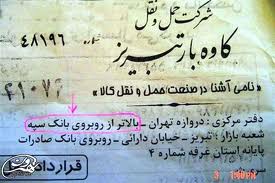 شرکت حمل و نقل
کاوه بار تبریز
۴۸۱۹۶
۴۱۰۷۴
« نامی آشنا در صنعت حمل و نقل کالا »
دفتر مرکزی : دروازه تهران - بالاتر از روبروی بانک سپه
شعبه بازار : تبریز - خیابان دارائی - روبروی بانک صادرات
پایانه استان غرفه شماره ۴
قرارداد